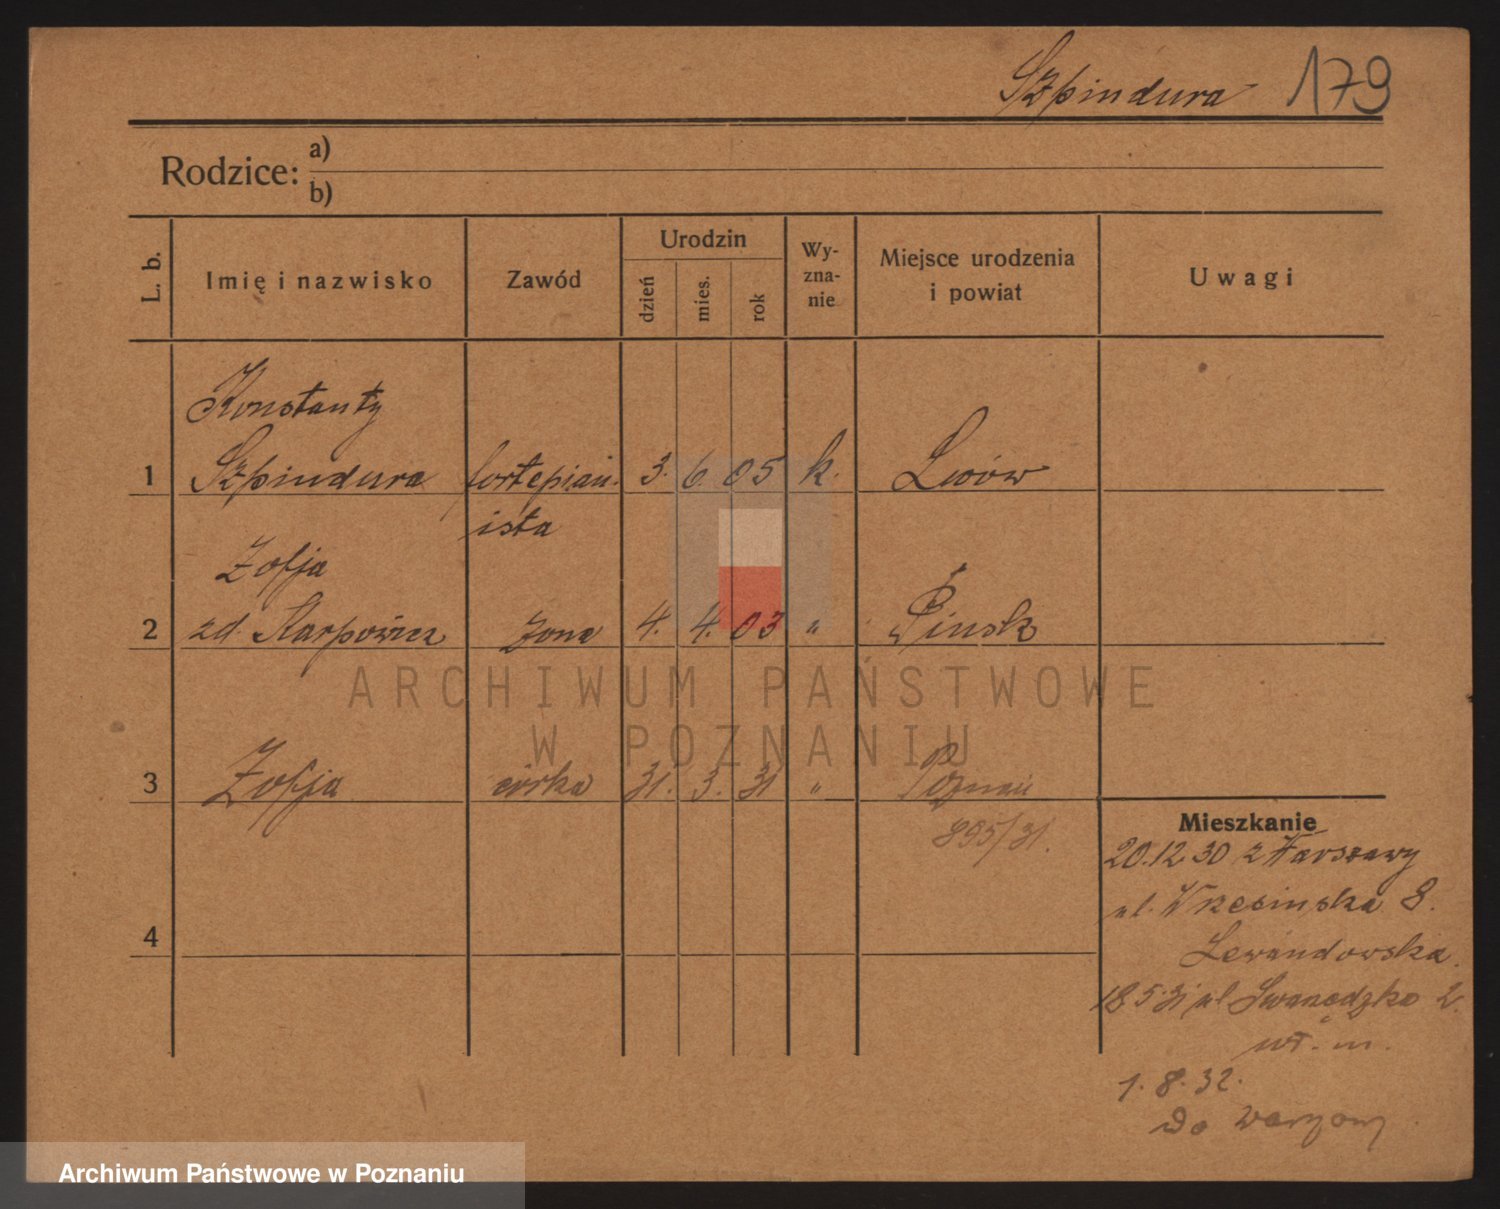 Szpindura 179
Rodzice: a)
b)
L. b. Imię i nazwisko Zawód Urodzin dzień mies. rok Wy-zna-nie Miejsce urodzenia i powiat Uwagi
Konstanty
1 Szpindura fortepian. 3. 6. 05 k. Lwów
ista
Zofja
2 zd. Karpowicz żona 4. 4. 03 " Pinsk
ARCHIWUM PAŃSTWOWE
W POZNANIU
3 Zofja córka 31. 3. 31 " Poznań
895/31.
Mieszkanie
20.12 30 z Warszawy
ul. Wrzesinska 8.
Lewandowska.
4
18 5 31 ul Swarzędzka 2.
wł. m.
1. 8. 32.
do Warszawy
Archiwum Państwowe w Poznaniu